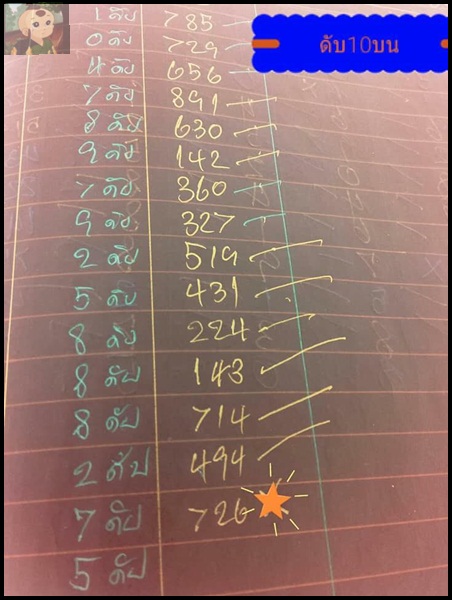 ดับ10บน
1 ดับ 785
0 ดับ 729
4 ดับ 656
7 ดับ 891
8 ดับ 630
9 ดับ 142
7 ดับ 360
9 ดับ 327
2 ดับ 519
5 ดับ 431
8 ดับ 224
8 ดับ 143
8 ดับ 714
2 ดับ 494
7 ดับ 726
5 ดับ